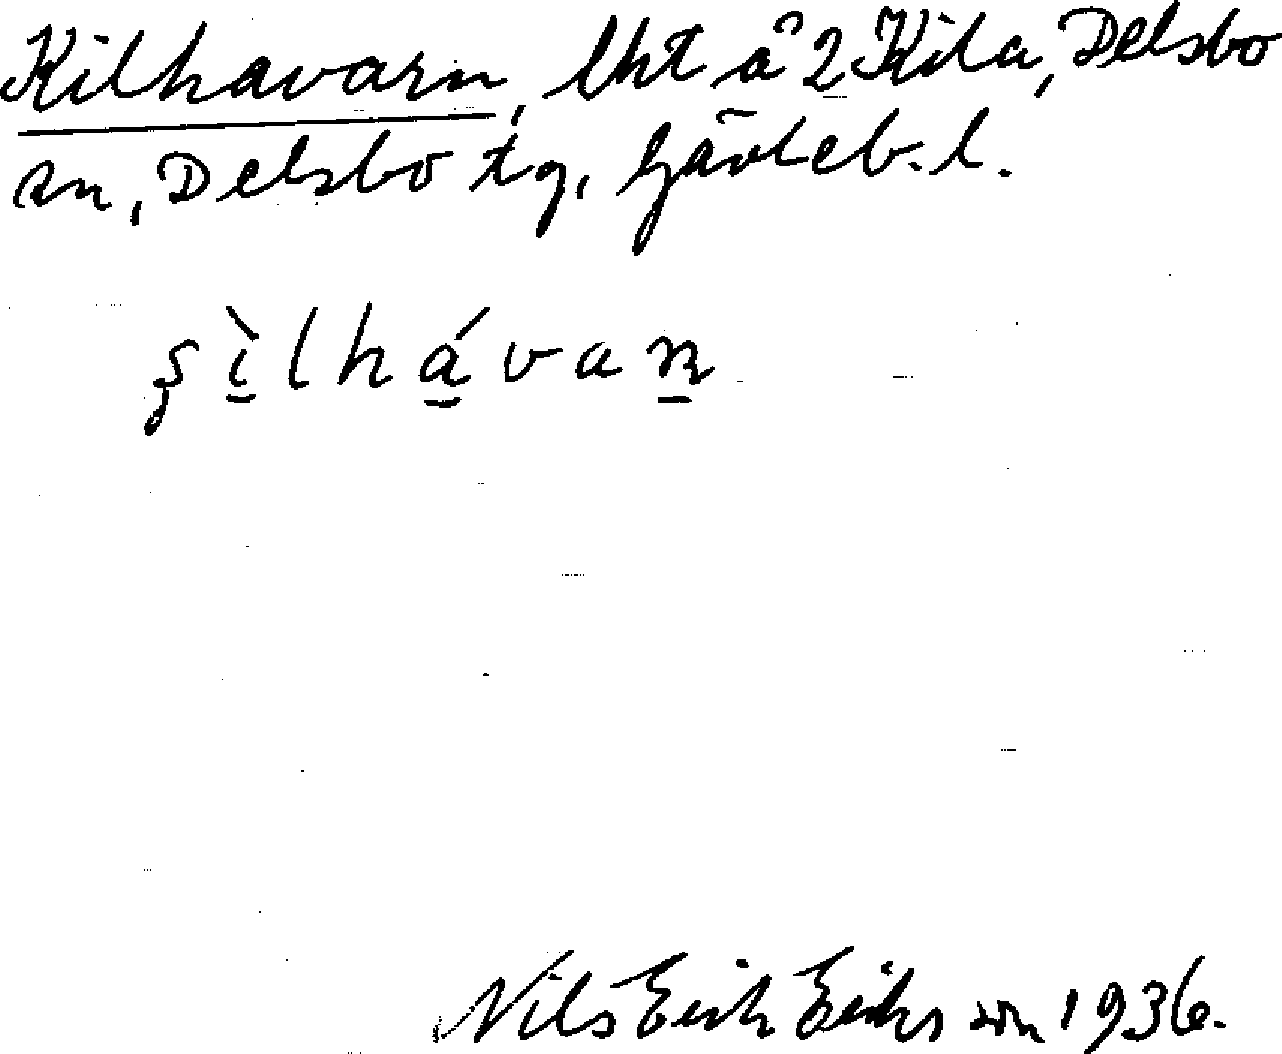 Kilhavarn, lht å 2 Kila, Delsbo
sn, Delsbo tg, Gävleb. l.
ş̀ìlhávan
Nils Erik Eriksson 1936.